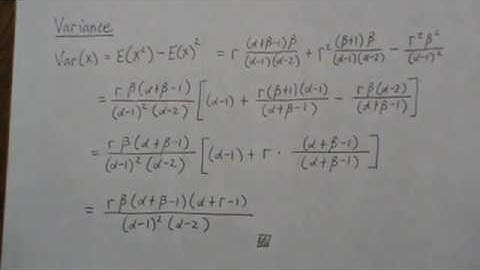 Variance
Var(x) = E(x²) - E(x)² = r (α+β-1)β/(α-1)(α-2) + r² (β+1)β/(α-1)(α-2) - r²β²/(α-1)²
= r β(α+β-1)/(α-1)²(α-2) [(α-1) + r(β+1)(α-1)/(α+β-1) - rβ(α-2)/(α+β-1)]
= r β(α+β-1)/(α-1)²(α-2) [(α-1) + r · (α+β-1)/(α+β-1)]
= r β(α+β-1)(α+r-1)/(α-1)²(α-2)